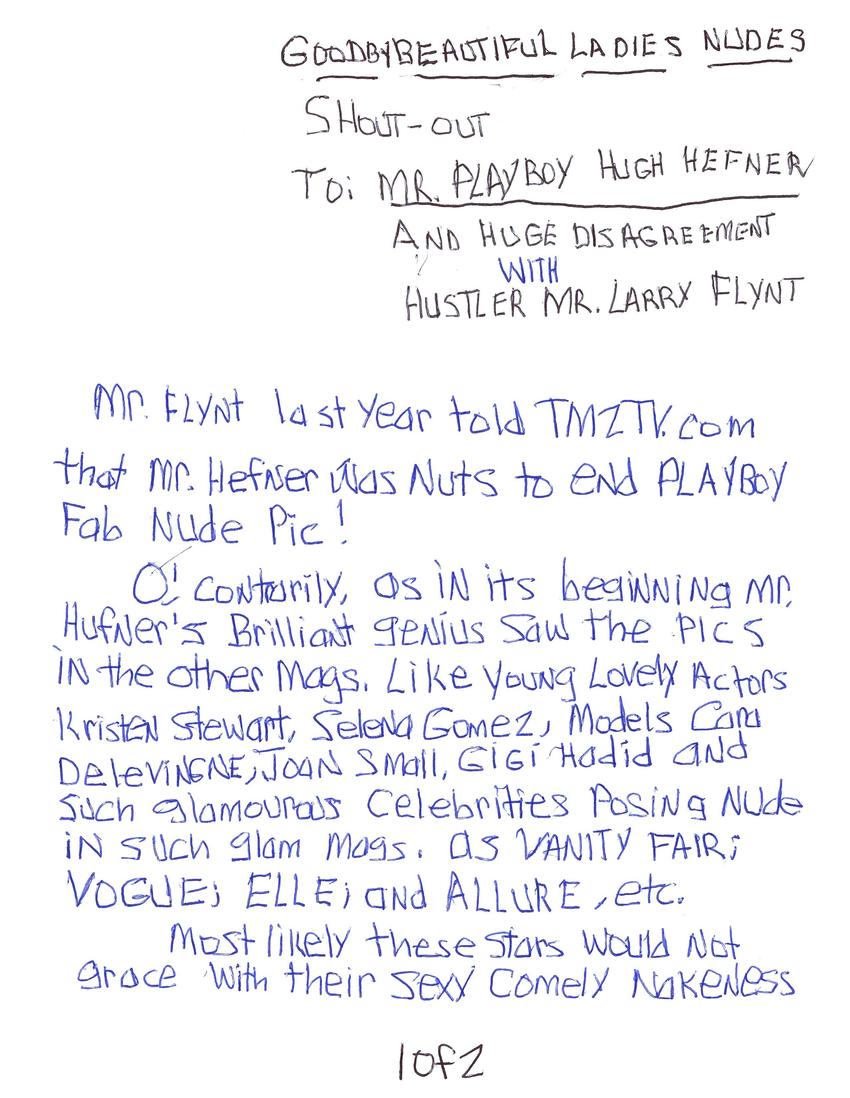 GOODBYBEAUTIFUL LADIES NUDES
SHOUT-OUT
TO: MR. PLAYBOY HUGH HEFNER
AND HUGE DISAGREEMENT
WITH
HUSTLER MR. LARRY FLYNT
Mr. FLYNt last year told TMZTV.com
that Mr. Hefner Was Nuts to end PLAYBOY
Fab Nude Pic!
O! contarily, as in its beginning Mr.
Hufner's Brilliant genius Saw the PICS
in the other Mags. Like young Lovely Actors
Kristen Stewart, Selena Gomez, Models Cara
DeleviNGNE, Joan Small, GiGi Hadid and
Such glamourous Celebrities Posing Nude
in such glam Mags. as VANITY FAIR;
VOGUE; ELLE; and ALLURE, etc.
Most likely these stars would Not
grace with their sexy Comely Nakeness
1 of 2